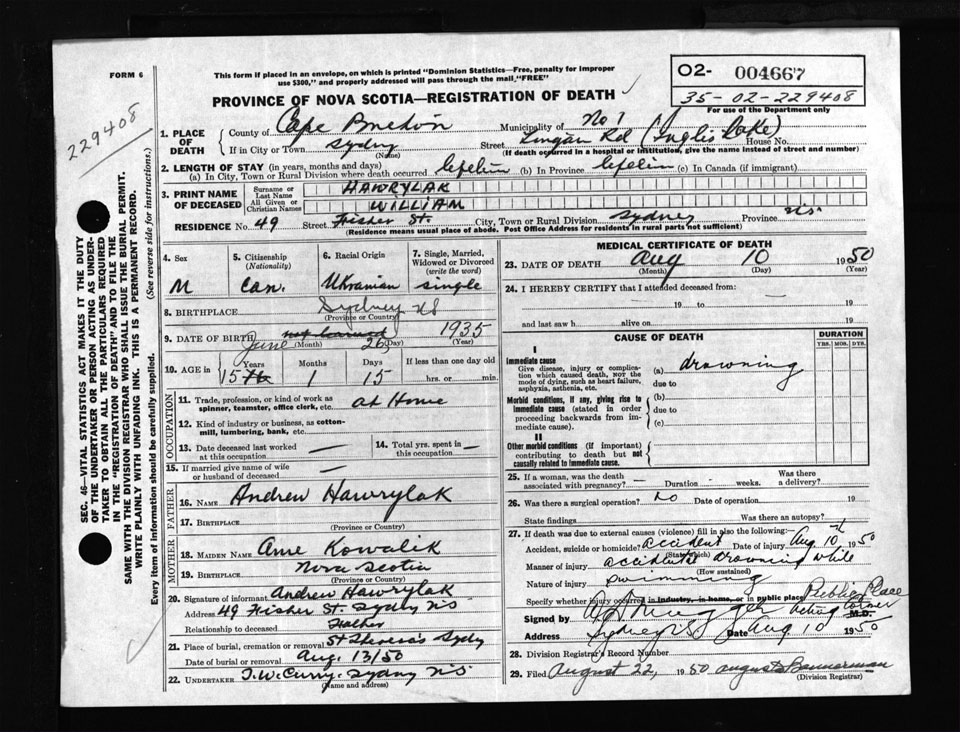 FORM 6
This form if placed in an envelope, on which is printed "Dominion Statistics—Free, penalty for improper
use $300," and properly addressed will pass through the mail "FREE"
O2- 004667
35-02-229408
For use of the Department only
PROVINCE OF NOVA SCOTIA—REGISTRATION OF DEATH
229408
1. PLACE OF DEATH
County of Cape Breton Municipality of No 1
If in City or Town Sydney (Name) Street Lingan Rd (Inglis Lake) House No.
(If death occurred in a hospital or institution, give the name instead of street and number)
2. LENGTH OF STAY (in years, months and days)
(a) In City, Town or Rural Division where death occurred lifetime (b) In Province lifetime (c) In Canada (if immigrant)
3. PRINT NAME OF DECEASED
Surname or Last Name HAWRYLAK
All Given or Christian Names WILLIAM
RESIDENCE No. 49 Street Fisher St. City, Town or Rural Division Sydney Province N.S.
(Residence means usual place of abode. Post Office Address for residents in rural parts not sufficient)
4. Sex M
5. Citizenship (Nationality) Can.
6. Racial Origin Ukranian
7. Single, Married, Widowed or Divorced (write the word) single
8. BIRTHPLACE Sydney N.S
(Province or Country)
9. DATE OF BIRTH June (Month) 26 (Day) 1935 (Year)
10. AGE in Years 15 Months 1 Days 15 If less than one day old hrs. or min.
OCCUPATION
11. Trade, profession, or kind of work as spinner, teamster, office clerk, etc. at Home
12. Kind of industry or business, as cotton-mill, lumbering, bank, etc.
13. Date deceased last worked at this occupation —
14. Total yrs. spent in this occupation —
15. If married give name of wife or husband of deceased —
FATHER
16. NAME Andrew Hawrylak
17. BIRTHPLACE
(Province or Country)
MOTHER
18. MAIDEN NAME Anne Kowalik
19. BIRTHPLACE Nova Scotia
(Province or Country)
20. Signature of informant Andrew Hawrylak
Address 49 Fisher St. Sydney NS
Relationship to deceased Father
21. Place of burial, cremation or removal St Theresa's Sydney
Date of burial or removal Aug. 13/50
22. UNDERTAKER T.W. Curry. Sydney NS
(Name and address)
MEDICAL CERTIFICATE OF DEATH
23. DATE OF DEATH Aug (Month) 10 (Day) 1950 (Year)
24. I HEREBY CERTIFY that I attended deceased from —
19 to 19
and last saw h alive on 19
CAUSE OF DEATH
DURATION
YRS. MOS. DYS.
I
Immediate cause
Give disease, injury or complication which caused death, NOT the mode of dying, such as heart failure, asphyxia, asthenia, etc.
(a) drowning
due to
Morbid conditions, if any, giving rise to immediate cause (stated in order proceeding backwards from immediate cause).
(b)
due to
(c)
II
Other morbid conditions (if important) contributing to death but not causally related to immediate cause.
25. If a woman, was the death associated with pregnancy? — Duration - weeks. Was there a delivery?
26. Was there a surgical operation? no Date of operation 19
State findings Was there an autopsy?
27. If death was due to external causes (violence) fill in also the following:
Accident, suicide or homicide? accident (State which) Date of injury Aug 10 1950
Manner of injury accidental drowning while
(How sustained)
Nature of injury swimming
Specify whether injury occurred in industry, in home, or in public place Public Place
Signed by acting Coroner M.D.
Address Sydney NS Date Aug 10 1950
28. Division Registrar's Record Number
29. Filed August 22, 1950
(Division Registrar)
SEC. 46—VITAL STATISTICS ACT MAKES IT THE DUTY
OF THE UNDERTAKER OR PERSON ACTING AS UNDER-
TAKER TO OBTAIN ALL THE PARTICULARS REQUIRED
IN THE "REGISTRATION OF DEATH" AND TO FILE THE
SAME WITH THE DIVISION REGISTRAR WHO SHALL ISSUE THE BURIAL PERMIT.
WRITE PLAINLY WITH UNFADING INK. THIS IS A PERMANENT RECORD.
Every item of information should be carefully supplied. (See reverse side for instructions.)